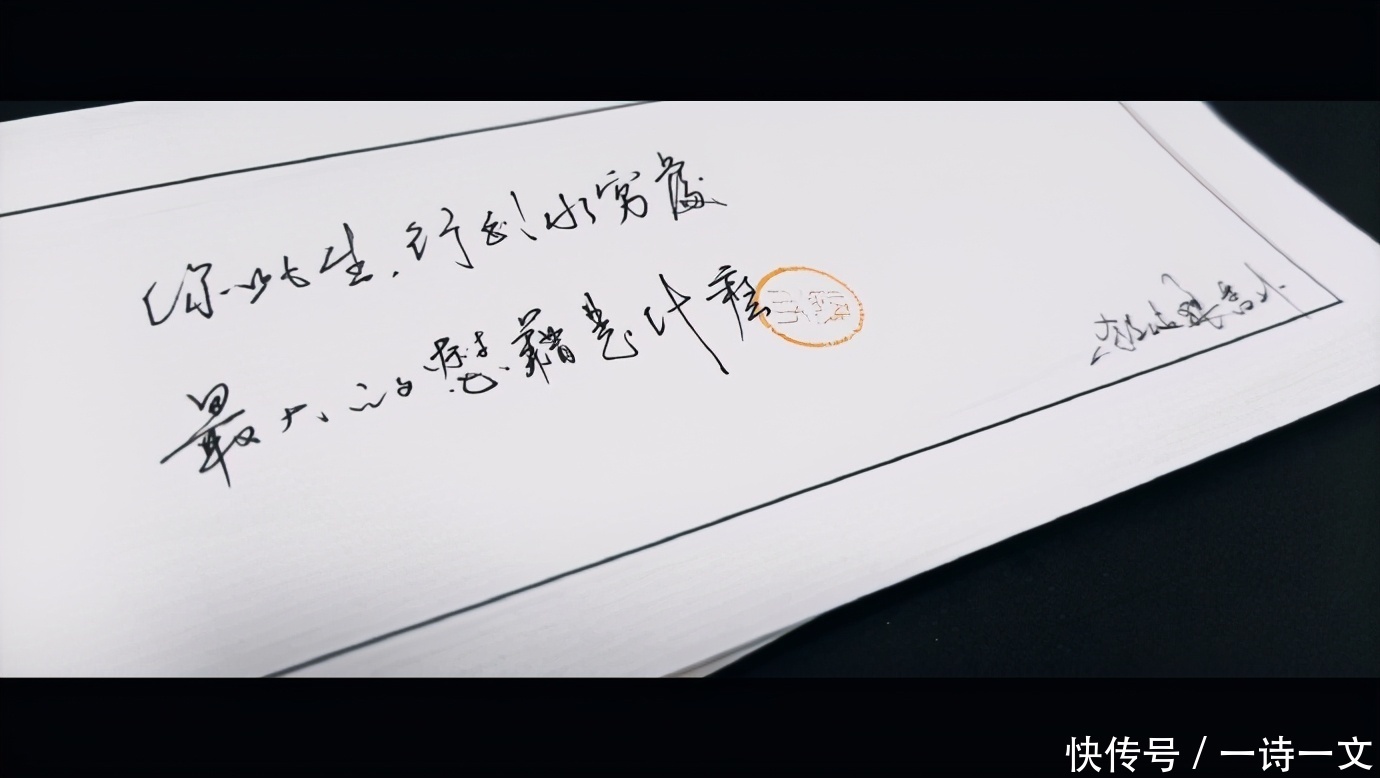 你此生.行到水窮處
最大的慰藉是什麼
快传号 / 一诗一文